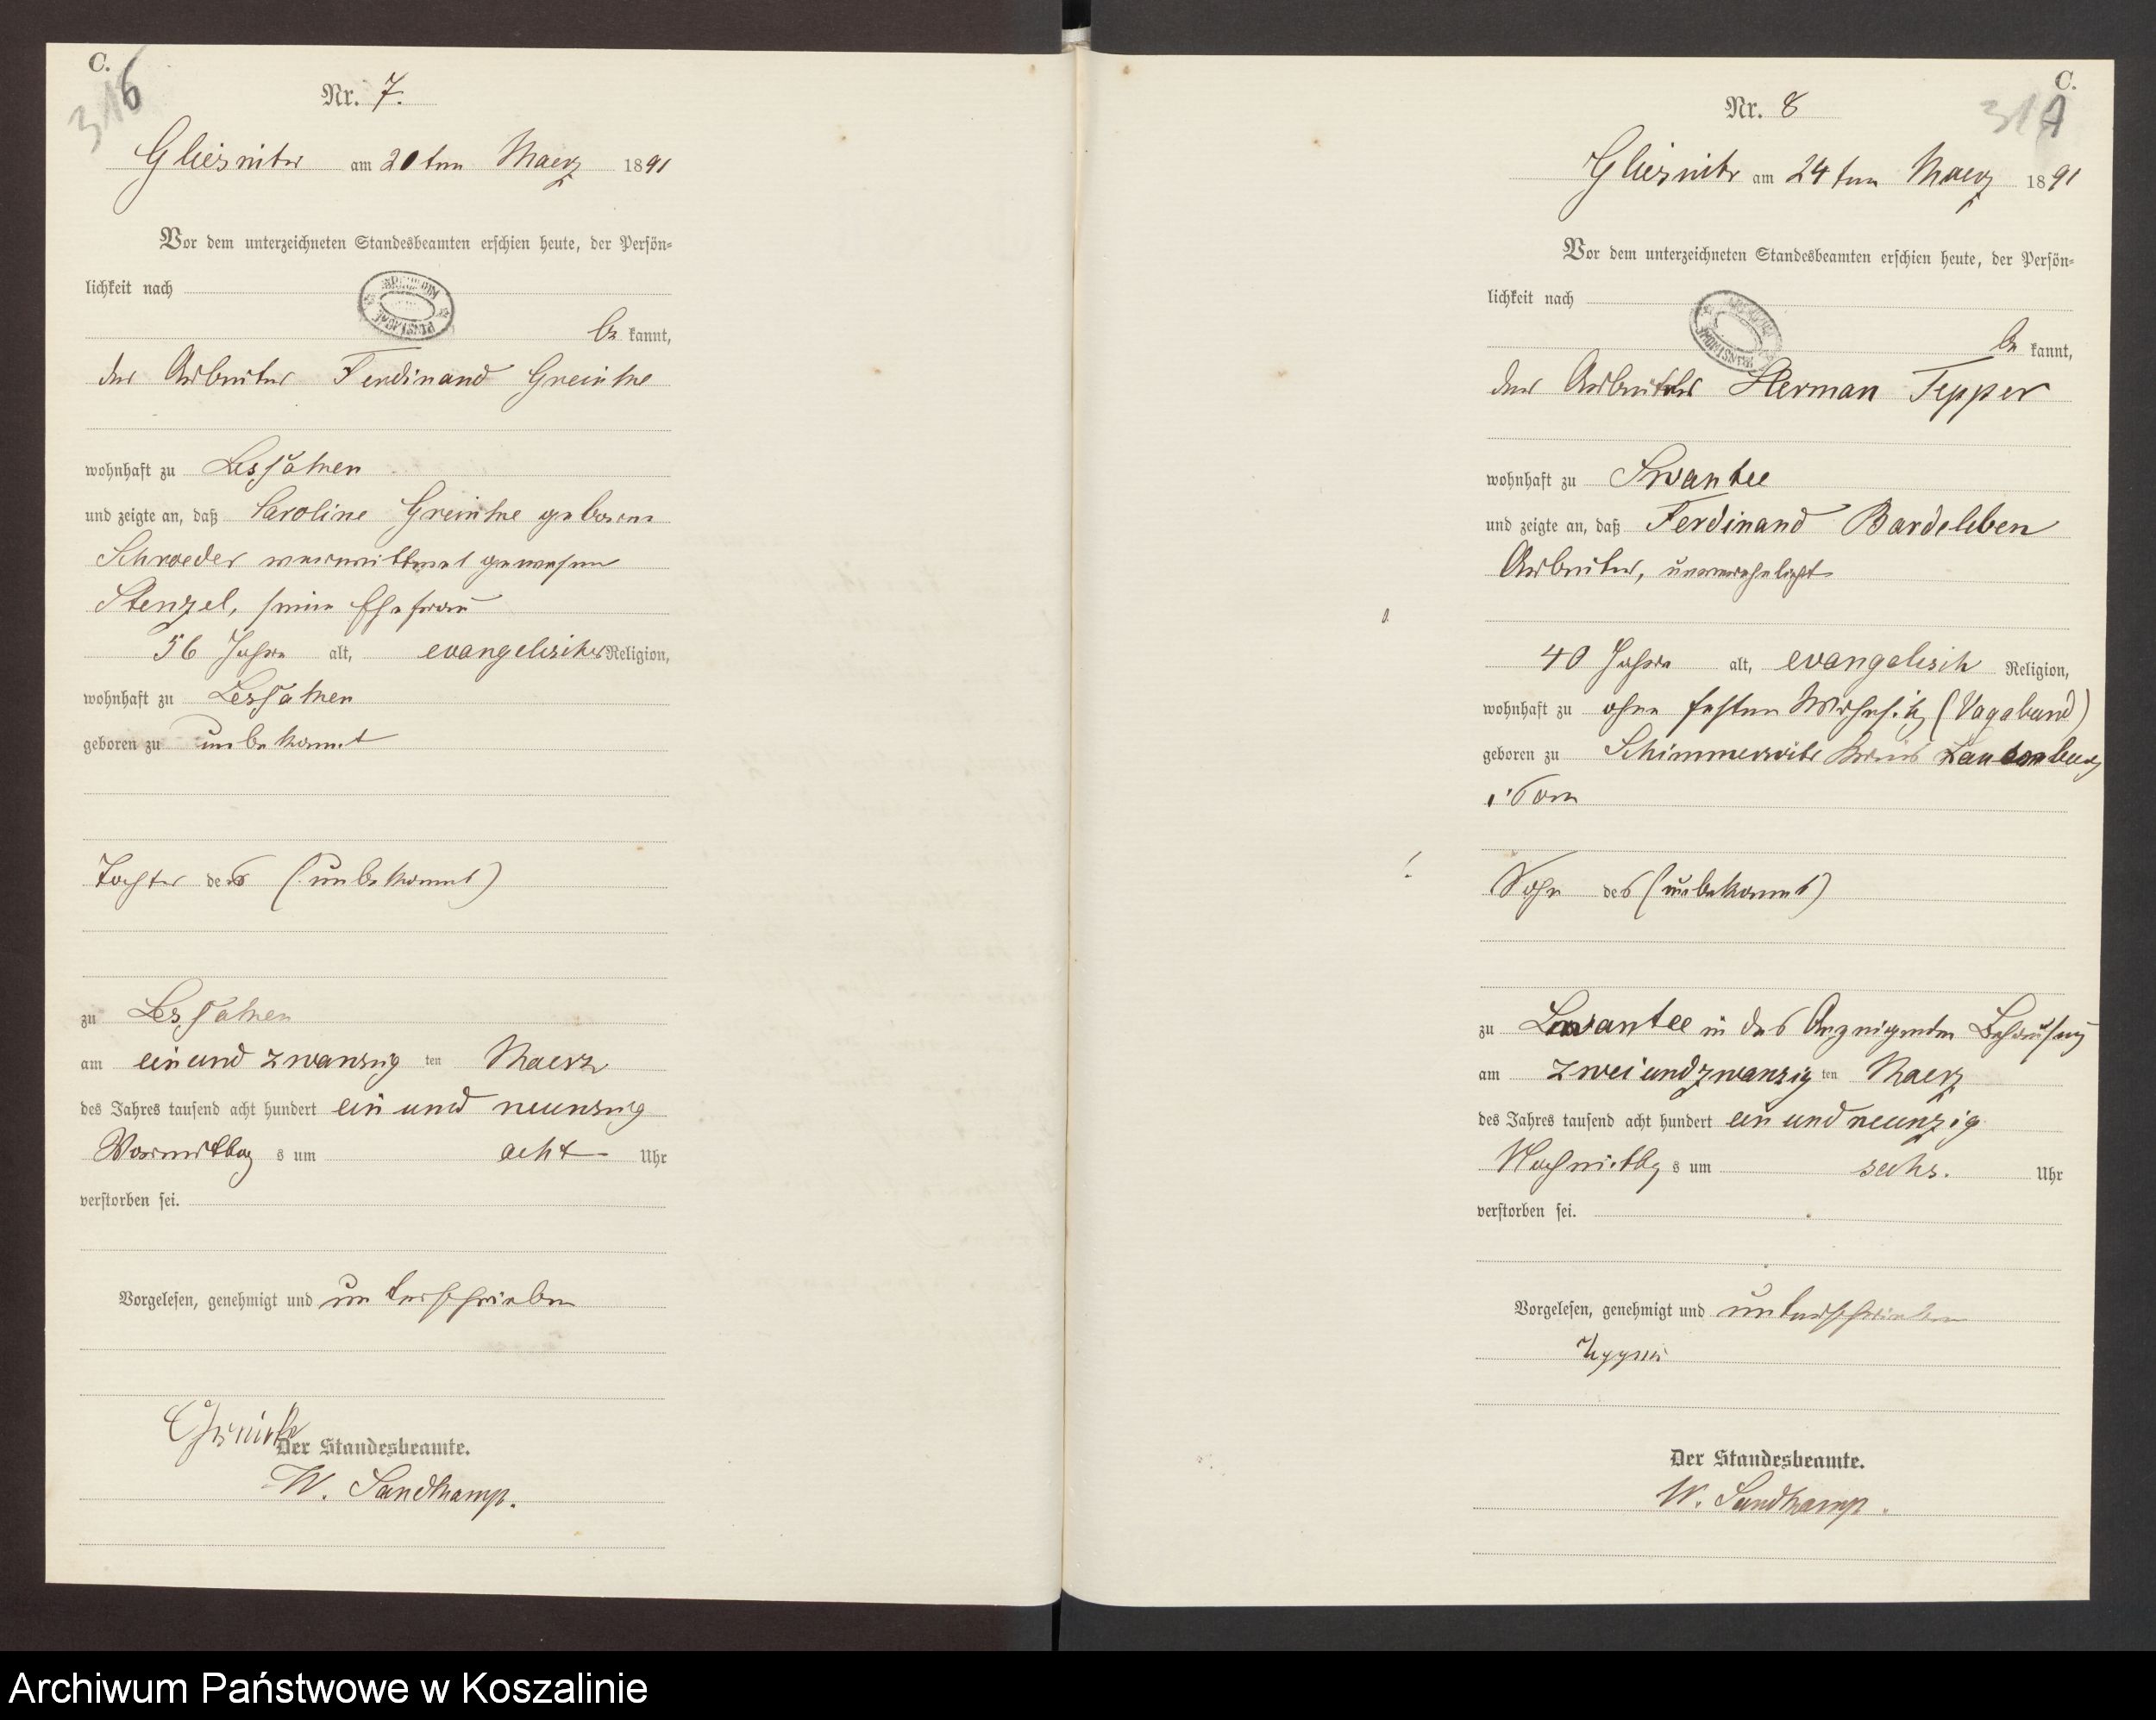 C.
316
Nr. 7.
Gliesnitz am 20ten Maerz 1891
Vor dem unterzeichneten Standesbeamten erschien heute, der Persön-
lichkeit nach
be kannt,
der Arbeiter Ferdinand Greinke
wohnhaft zu Lessaken
und zeigte an, daß Caroline Greinke geborene
Schroeder verwittwet gewesene
Stenzel, seine Ehefrau
56 Jahre alt, evangelischer Religion,
wohnhaft zu Lessaken
geboren zu unbekannt
Tochter des (unbekannt)
zu Lessaken
am ein und zwanzig ten Maerz
des Jahres tausend acht hundert ein und neunzig
Vormittag s um acht Uhr
verstorben sei.
Vorgelesen, genehmigt und unterschrieben
Greinke
Der Standesbeamte.
W. Sandkamp.
C.
317
Nr. 8
Gliesnitz am 24ten Maerz 1891
Vor dem unterzeichneten Standesbeamten erschien heute, der Persön-
lichkeit nach
be kannt,
der Arbeiter Herman Tepper
wohnhaft zu Swantee
und zeigte an, daß Ferdinand Bardeleben
Arbeiter, unverehelicht
40 Jahre alt, evangelisch Religion,
wohnhaft zu ohne festen Wohnsitz (Vagabund)
geboren zu Schimmerwitz Kreis Lauenburg
i Pom
Sohn des (unbekannt)
zu Swantee in des Anzeigenden Behausung
am zwei und zwanzig ten Maerz
des Jahres tausend acht hundert ein und neunzig
Nachmittag s um sechs. Uhr
verstorben sei.
Vorgelesen, genehmigt und unterschrieben
Tepper
Der Standesbeamte.
W. Sandkamp.
Archiwum Państwowe w Koszalinie